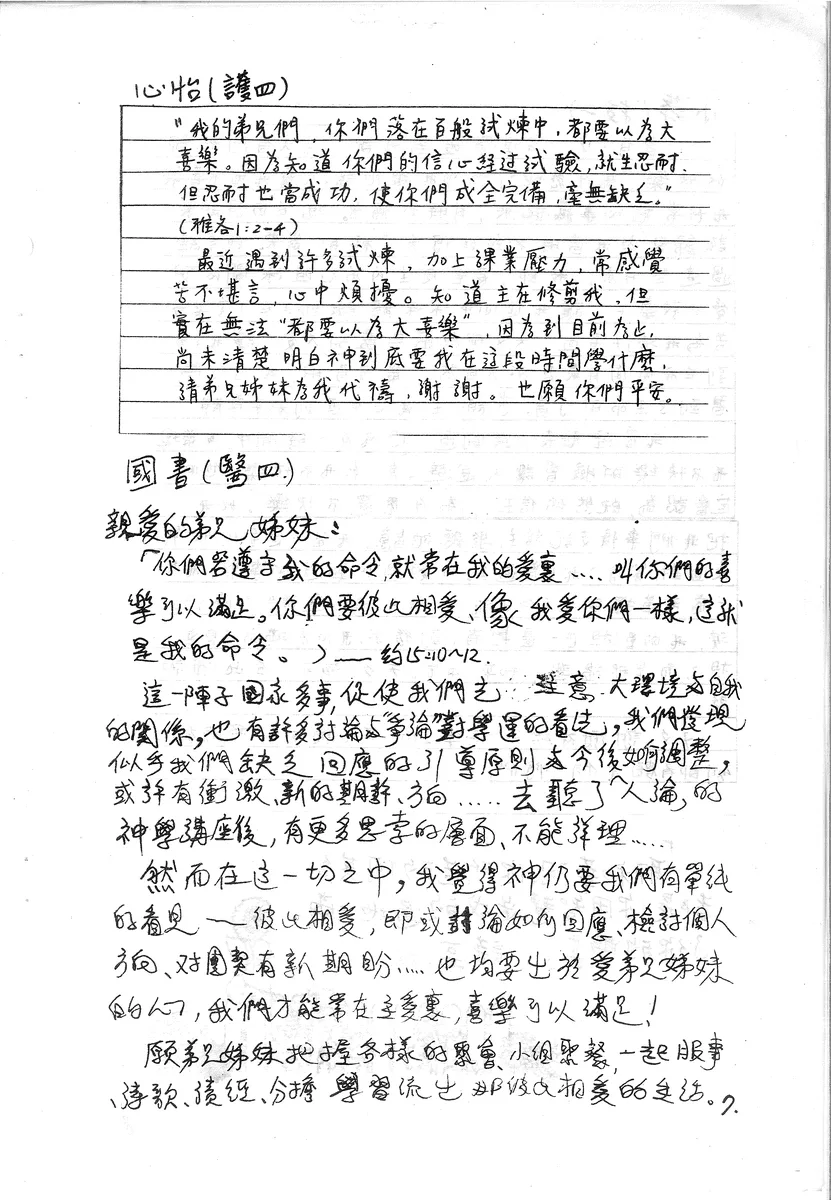 心怡(護四)
"我的弟兄們，你們落在百般試煉中，都要以為大
喜樂。因為知道你們的信心經过試驗，就生忍耐．
但忍耐也當成功，使你們成全完備，毫無缺乏。"
(雅各1:2-4)
最近遇到許多試煉，加上課業壓力，常感覺
苦不堪言，心中煩擾。知道主在修剪我，但
實在無法"都要以為大喜樂"，因為到目前為止，
尚未清楚明白神到底要我在这段時間學什麼，
請弟兄姊妹為我代禱，謝謝。也願你們平安。
國書(醫四.)
親愛的弟兄姊妹：
「你們若遵守我的命令,就常在我的愛裏.....叫你們的喜
樂可以滿足。你們要彼此相愛、像我愛你們一樣,這就
是我的命令。」——約15:10~12.
這一陣子國家多事,促使我們去注意大環境与自我
的關係，也有許多討論与"爭論"對學運的看法，我們發現
似乎我們缺乏回應的引導原則与今後如何調整，
或許有衝激、新的期許、方向.....去聽了「人論」的
神學講座後，有更多思索的層面、不能詳理.....
然而在这一切之中，我覺得神仍要我們有單純
的看見——彼此相愛，即或討論如何回應、檢討個人
方向、对團契有新期盼.....也均要出於愛弟兄姊妹
的心，我們才能常在主愛裏，喜樂可以滿足！
願弟兄姊妹把握各樣的聚會、小組聚餐，一起服事
、詩歌、讀經、分擔學習流出那彼此相愛的生活。
7.